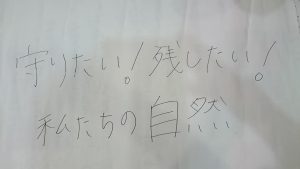 守りたい!残したい!
私たちの自然